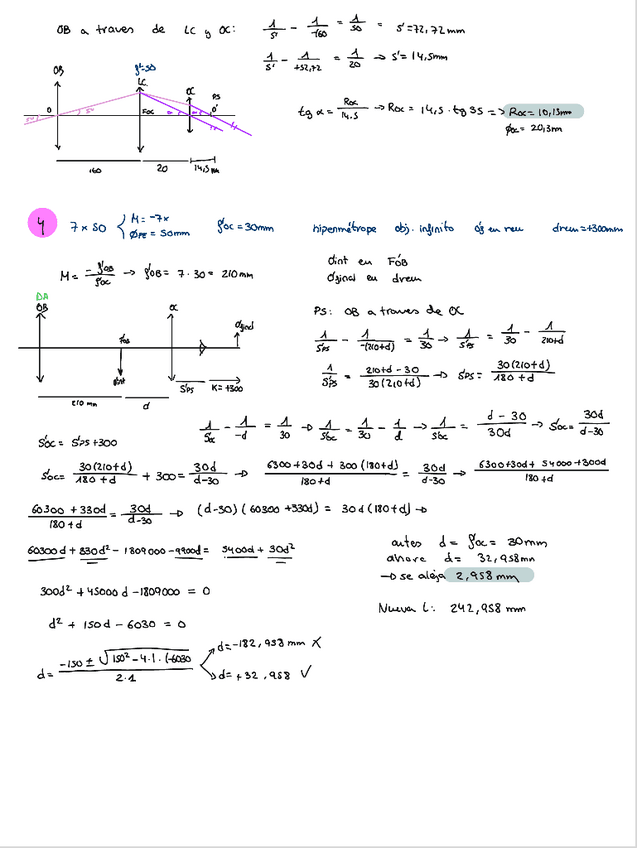 OB a traves de LC y OC:
1/s' - 1/-160 = 1/50 = s'=72,72mm
1/s' - 1/+52,72 = 1/20 → s'= 14,5mm
OB
f'=50
LC
OC
PS
O
Foc
O'
160
20
14,5 mm
tg α = Roc/14.5 → Roc = 14,5 · tg 35 => Roc = 10,15mm
Øoc = 20,3mm
4
7 x 50 { M = -7x
ØPE = 50mm
f'oc = 30mm
hipermétrope obj. infinito
drem=+300mm
M = -f'OB/f'oc → f'OB = 7 · 30 = 210 mm
O'int en F'OB
O'final en drem
DA
OB
OC
O'final
210 mm
d
s'PS
K=+300
PS: OB a traves de OC
1/s'PS - 1/-(210+d) = 1/30 → 1/s'PS = 1/30 - 1/210+d
1/s'PS = 210+d-30/30(210+d) → s'PS = 30(210+d)/180+d
1/s'oc - 1/-d = 1/30 → 1/s'oc = 1/30 - 1/d → 1/s'oc = d-30/30d → s'oc = 30d/d-30
s'oc = s'PS +300
s'oc = 30(210+d)/180+d + 300 = 30d/d-30 → 6300+30d + 300(180+d)/180+d = 30d/d-30 → 6300+30d+ 54000+300d/180+d
60300 + 330d/180+d = 30d/d-30 → (d-30)(60300+330d) = 30d(180+d) →
60300d + 330d² - 1809000 - 9900d = 5400d + 30d²
300d² + 45000 d - 1809000 = 0
d² + 150d - 6030 = 0
d = -150 ± √150² - 4·1·(-6030/2·1
d = -182,958 mm X
d = +32,958 ✓
antes d = f'oc = 30mm
ahora d = 32,958mm
→ se aleja 2,958 mm
Nueva L: 242,958 mm